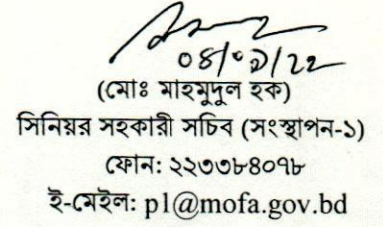 ০৪/০৯/২২
(মোঃ মাহমুদুল হক)
সিনিয়র সহকারী সচিব (সংস্থাপন-১)
ফোন: ২২৩৩৮৪০৭৮
ই-মেইল: p1@mofa.gov.bd